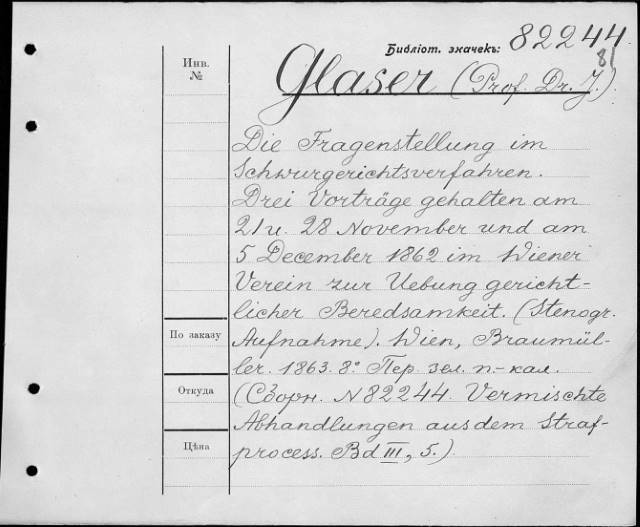 Библіот. значекъ: 82244
81
Инв.
№
Glaser (Prof. Dr. J.).
Die Fragenstellung im
Schwurgerichtsverfahren.
Drei Vorträge gehalten am
21 u. 28 November und am
5 December 1862 im Wiener
Verein zur Uebung gericht-
licher Beredsamkeit. (Stenogr.
По заказу
Aufnahme). Wien, Braumül-
ler. 1863. 8º Пер. зел. п.-кал.
Откуда
(Сборн. N 82244. Vermischte
Abhandlungen aus dem Straf-
Цѣна
process. Bd III, 5.)